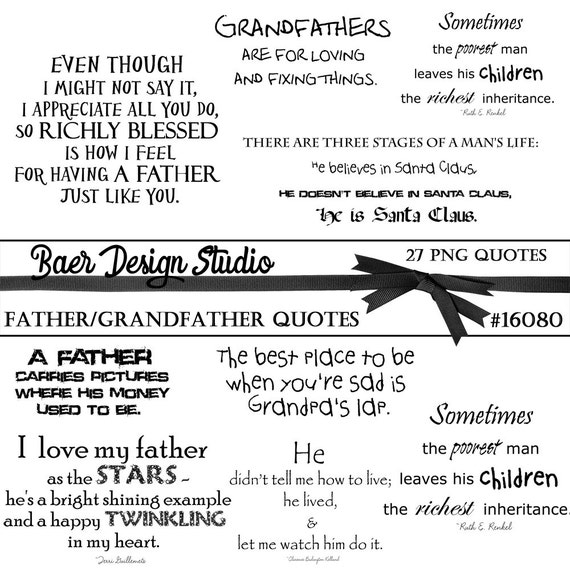 EVEN THOUGH
I MIGHT NOT SAY IT,
I APPRECIATE ALL YOU DO,
SO RICHLY BLESSED
IS HOW I FEEL
FOR HAVING A FATHER
JUST LIKE YOU.
GRANDFATHERS
ARE FOR LOVING
AND FIXING THINGS.
Sometimes
the poorest man
leaves his children
the richest inheritance.
~Ruth E. Renkel
THERE ARE THREE STAGES OF A MAN'S LIFE:
He believes in Santa Claus,
HE DOESN'T BELIEVE IN SANTA CLAUS,
He is Santa Claus.
Baer Design Studio
27 PNG QUOTES
FATHER/GRANDFATHER QUOTES
#16080
A FATHER
CARRIES PICTURES
WHERE HIS MONEY
USED TO BE.
The best place to be
when you're sad is
Grandpa's lap.
Sometimes
the poorest man
leaves his children
the richest inheritance.
~Ruth E. Renkel
I love my father
as the STARS ~
he's a bright shining example
and a happy TWINKLING
in my heart.
~Terri Guillemets
He
didn't tell me how to live;
he lived,
&
let me watch him do it.
~Clarence Budington Kelland